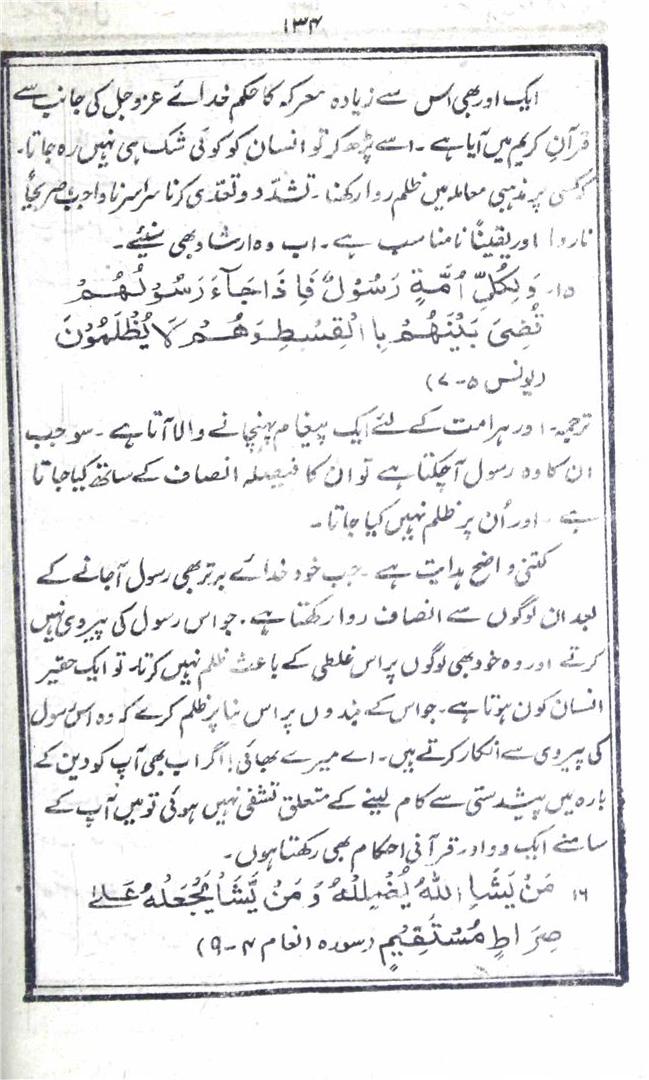 ۱۳۴
ایک اور بھی اس سے زیادہ معرکہ کا حکم خدائے عزوجل کی جانب سے
قرآن کریم میں آیا ہے ۔ اسے پڑھ کر تو انسان کو کوئی شک ہی نہیں رہ جاتا۔
کہ کسی پر مذہبی معاملہ میں ظلم روا رکھنا ۔ تشدد و تعدّی کرنا سراسر ناواجب صریحاً
ناروا اور یقیناً نامناسب ہے ۔ اب وہ ارشاد بھی سنیئے ۔
۱۵۔ وَلِكُلِّ اُمَّةٍ رَسُوْلٌ فَاِذَا جَآءَ رَسُوْلُهُمْ
قُضِىَ بَيْنَهُمْ بِالْقِسْطِ وَهُمْ لَا يُظْلَمُوْنَ
(یونس ۵-۷)
ترجمہ ۔ اور ہر امت کے لئے ایک پیغام پہنچانے والا آتا ہے ۔ سو جب
ان کا وہ رسول آ چکتا ہے تو ان کا فیصلہ انصاف کے ساتھ کیا جاتا
ہے ۔ اور اُن پر ظلم نہیں کیا جاتا ۔
کتنی واضح ہدایت ہے ۔ جب خود خدائے برتر بھی رسول آ جانے کے
بعد ان لوگوں سے انصاف روا رکھتا ہے ۔ جو اس رسول کی پیروی نہیں
کرتے اور وہ خود بھی لوگوں پر اس غلطی کے باعث ظلم نہیں کرتا۔ تو ایک حقیر
انسان کون ہوتا ہے ۔ جو اس کے بندوں پر اس بنا پر ظلم کرے کہ وہ اس رسول
کی پیروی سے انکار کرتے ہیں ۔ اے میرے بھائی! اگر اب بھی آپ کو دین کے
بارہ میں پیشدستی سے کام لینے کے متعلق تشفی نہیں ہوئی تو میں آپ کے
سامنے ایک دو اور قرآنی احکام بھی رکھتا ہوں ۔
۱۶ مَنْ يَشَاِ اللهُ يُضْلِلْهُ وَمَنْ يَّشَاْ يَجْعَلْهُ عَلٰى
صِرَاطٍ مُسْتَقِيْمٍ (سورہ انعام ۴-۹)